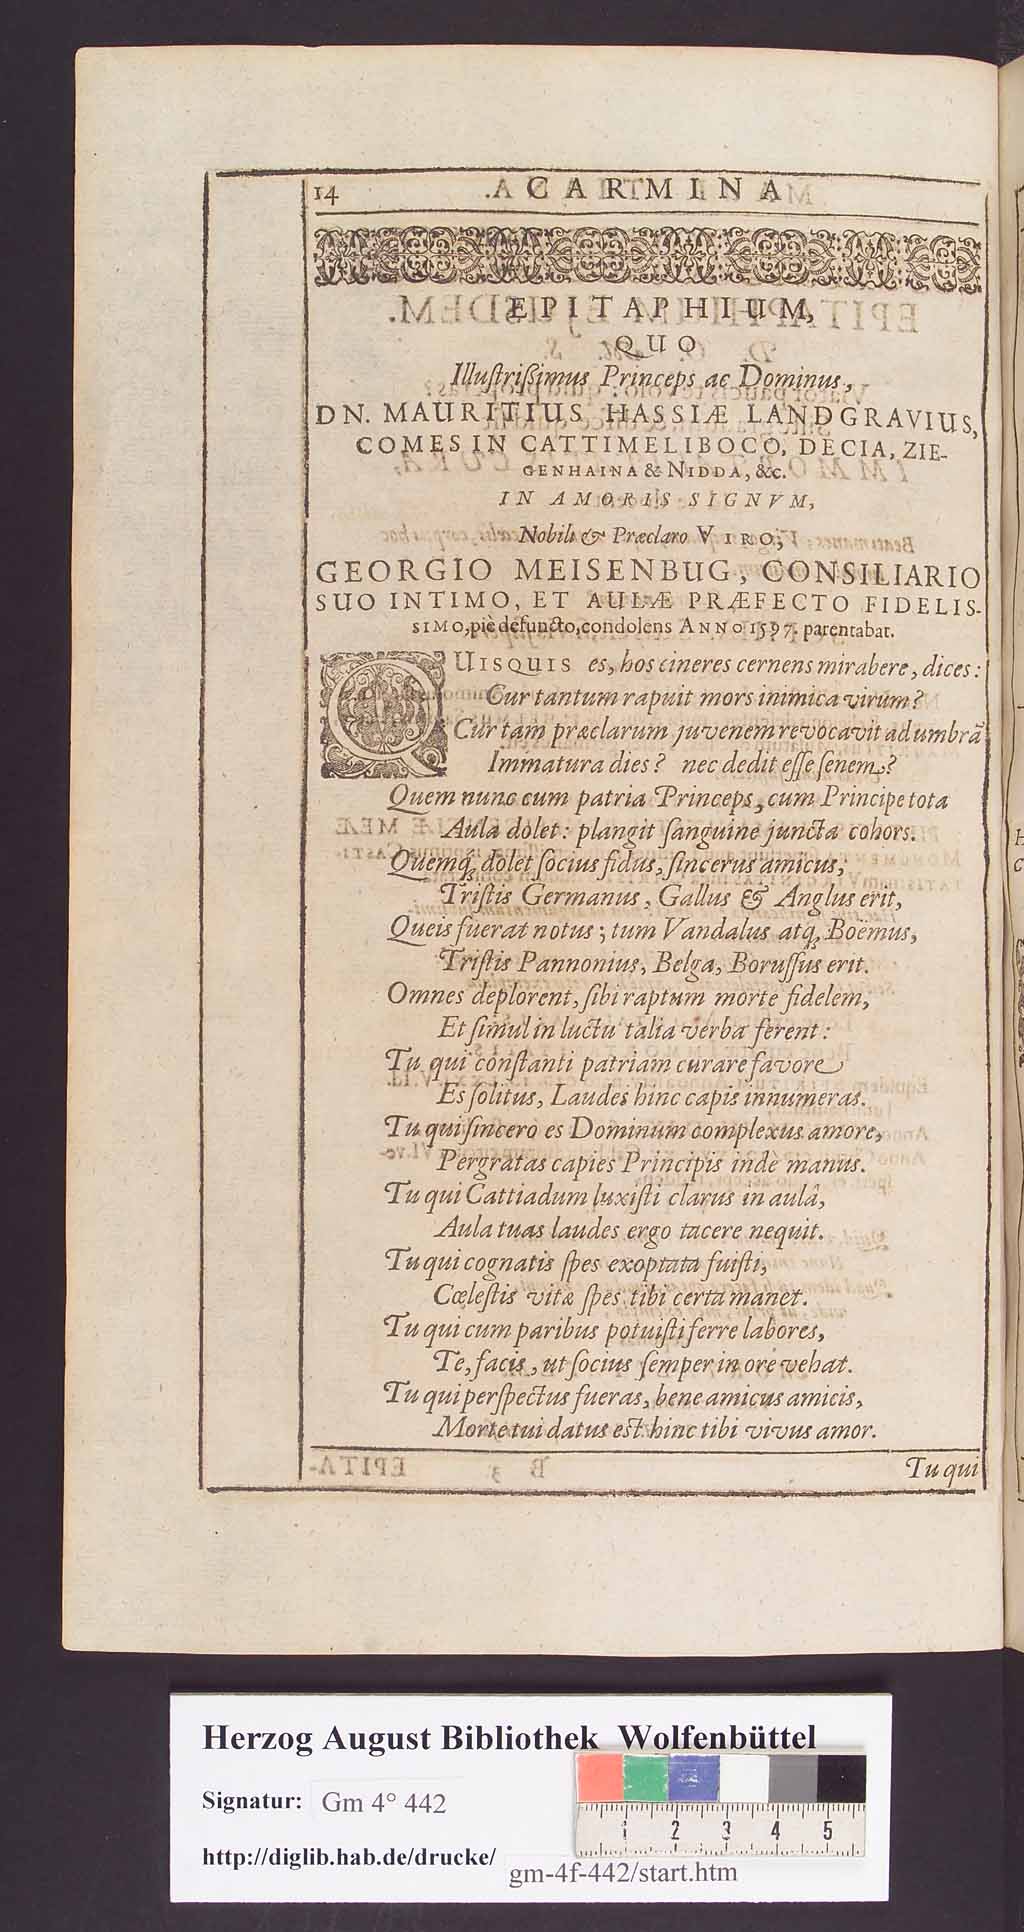 14 CARMINA
EPITAPHIUM,
QUO
Illuſtriſſimus Princeps ac Dominus,
DN. MAURITIUS HASSIÆ LANDGRAVIUS,
COMES IN CATTIMELIBOCO, DECIA, ZIE-
GENHAINA & NIDDA, &c.
IN AMORIS SIGNVM,
Nobili & Præclaro VIRO,
GEORGIO MEISENBUG, CONSILIARIO
SUO INTIMO, ET AULÆ PRÆFECTO FIDELIS-
SIMO, piè defuncto, condolens ANNO 1597. parentabat.
QUISQUIS es, hos cineres cernens mirabere, dices:
Cur tantum rapuit mors inimica virum?
Cur tam præclarum juvenem revocavit ad umbrã
Immatura dies? nec dedit eſſe ſenem?
Quem nunc cum patria Princeps, cum Principe tota
Aula dolet: plangit ſanguine juncta cohors.
Quemq́; dolet ſocius fidus, ſincerus amicus,
Triſtis Germanus, Gallus & Anglus erit,
Queis fuerat notus; tum Vandalus atq; Boëmus,
Triſtis Pannonius, Belga, Boruſſus erit.
Omnes deplorent, ſibi raptum morte fidelem,
Et ſimul in luctu talia verba ferent:
Tu qui conſtanti patriam curare favore
Es ſolitus, Laudes hinc capis innumeras.
Tu qui ſincero es Dominum complexus amore,
Pergratas capies Principis inde manus.
Tu qui Cattiadum luxiſti clarus in aulâ,
Aula tuas laudes ergo tacere nequit.
Tu qui cognatis ſpes exoptata fuiſti,
Cœleſtis vitæ ſpes tibi certa manet.
Tu qui cum paribus potuiſti ferre labores,
Te, facis, ut ſocius ſemper in ore vehat.
Tu qui perſpectus fueras, bene amicus amicis,
Morte tui datus eſt hinc tibi vivus amor.
Tu qui
Herzog August Bibliothek Wolfenbüttel
Signatur: Gm 4° 442
http://diglib.hab.de/drucke/ gm-4f-442/start.htm
1 2 3 4 5